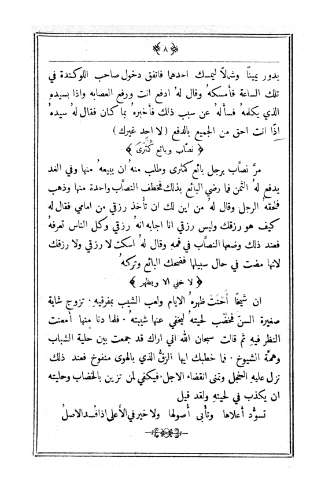 ﴿ ٨ ﴾
يدور يمينًا وشمالًا ليمسك احدها فاتفق دخول صاحب اللوكندة في
تلك الساعة فامسكهُ وقال لهُ ادفع انت ورفع العصابه واذا بسيدهِ
الذي يكلمهُ فسألهُ عن سبب ذلك فاخبرهُ بما كان فقال لهُ سيدهُ
اذًا انت احق من الجميع بالدفع (لا احد غيرك)
﴿ نصّاب وبائع كمّثرى ﴾
مرَّ نصّاب برجل بائع كمثرى وطلب منهُ ان يبيعهُ منها وفي الغد
يدفع لهُ الثمن فما رضي البائع بذلك فخطف النصّاب واحدة منها وذهب
فلحقهُ الرجل وقال لهُ من اين لك ان تأخذ رزقي من امامي فقال لهُ
كيف هو رزقك وليس رزقي انا اجابه انهُ رزقي وكل الناس تعرفهُ
فعند ذلك وضعها النصّاب في فمهِ وقال لهُ اسكت لا رزقي ولا رزقك
لانها مضت في حال سبيلها فضحك البائع وتركهُ
﴿ لا خفي الا ويظهر ﴾
ان شيخًا أَحنَت ظهرهُ الايام ولعب الشيب بمفرقيهِ تزوج شابة
صغيرة السنّ فخضب لحيتهُ ليخفي عنها شيبتهُ فلما دنا منها أمعنت
النظر فيهِ ثم قالت سبحان الله اني اراك قد جمعت بين حلية الشباب
وهمّة الشيوخ فما خطبك ايها الزقُّ الذي بالهوى منفوخ فعند ذلك
نزل عليهِ الخجل وتمنى انقضاء الاجل فيكفي لمن تزين بالخضاب وحليته
ان يكذب في لحيتهِ ولقد قيل
تسوّد أعلاها وتأبى أصولها ولا خير في الأعلى اذا فسد الاصلُ